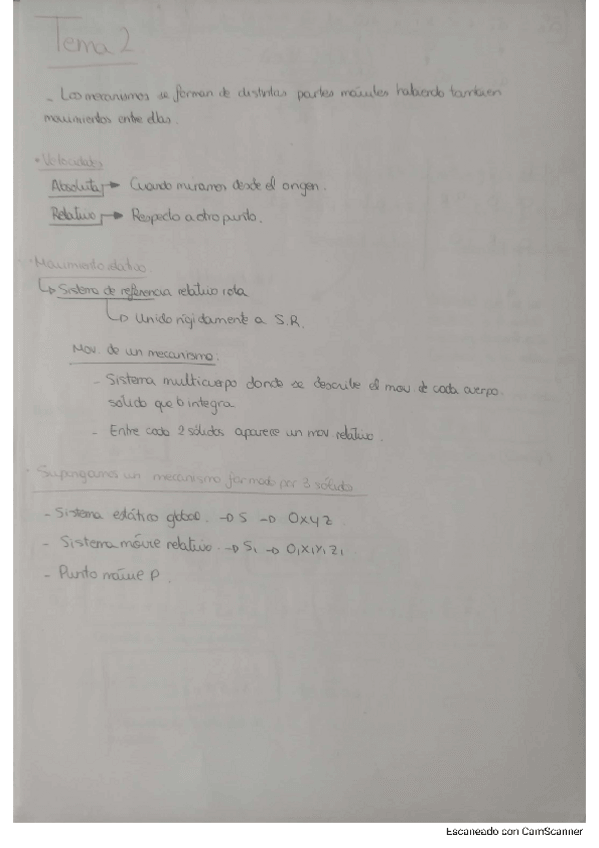 Tema 2
- Los mecanismos se forman de distintas partes móviles habiendo también
movimientos entre ellas.
• Velocidades
Absoluta → Cuando miramos desde el origen.
Relativo → Respecto a otro punto.
• Movimiento relativo
↳ Sistema de referencia relativo rota
↳ Unido rígidamente a S.R.
Mov. de un mecanismo:
- Sistema multicuerpo donde se describe el mov. de cada cuerpo
solido que lo integra
- Entre cada 2 sólidos aparece un mov. relativo.
• Supongamos un mecanismo formado por 3 sólidos
- Sistema estático global. → S → Oxyz
- Sistema móvil relativo. → S₁ → O₁X₁Y₁Z₁
- Punto móvil P.
Escaneado con CamScanner